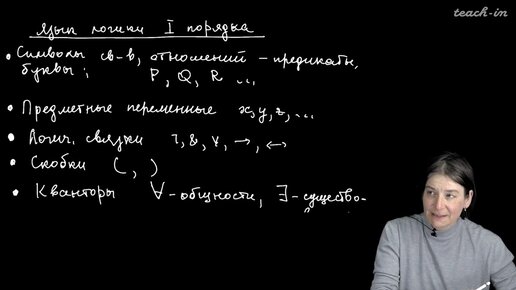 teach-in
Язык логики I порядка
• Символы св-в, отношений – предикатн.
буквы; P, Q, R ...,
• Предметные переменные x, y, z, ...
• Логич. связки ¬, &, ∨, →, ↔
• Скобки (, )
• Кванторы ∀ – общности, ∃ – существо-